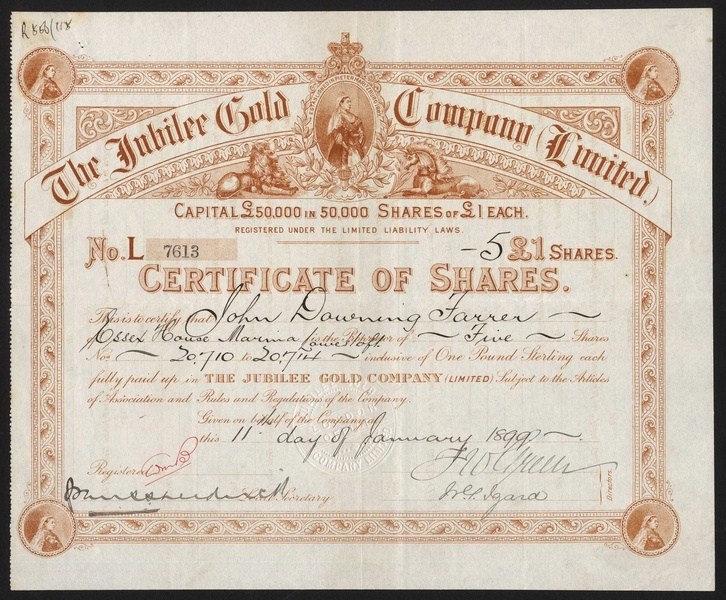 The Jubilee Gold Company (Limited.)
CAPITAL £50,000 IN 50,000 SHARES OF £1 EACH.
REGISTERED UNDER THE LIMITED LIABILITY LAWS.
No. L 7613 - 5 £1 SHARES.
CERTIFICATE OF SHARES.
This is to certify that John Downing Farrer
of Essex House Marina is the Proprietor of Five Shares
Nos. 20.710 to 20.714 inclusive of One Pound Sterling each
fully paid up in THE JUBILEE GOLD COMPANY (LIMITED) Subject to the Articles
of Association and Rules and Regulations of the Company.
Given on behalf of the Company at
this 11th day of January 1899
Registered
Secretary
Directors.